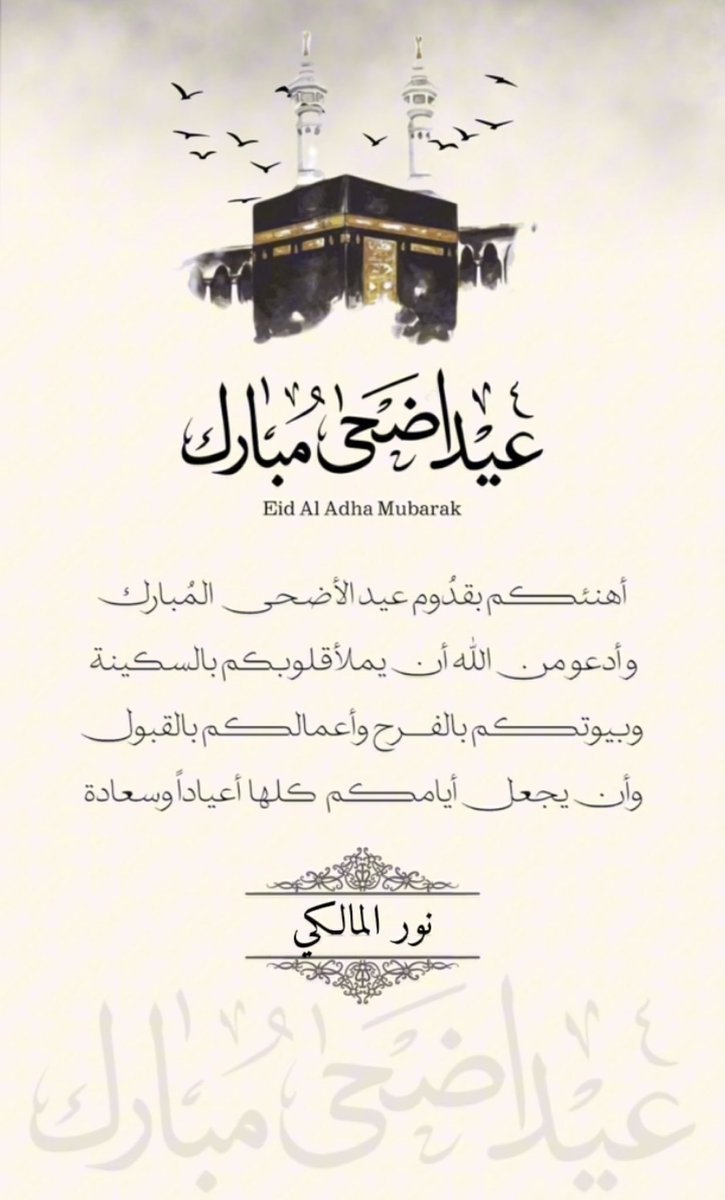 عيد اضحى مُبارك
Eid Al Adha Mubarak
أهنئكم بقدُوم عيد الأضحى المُبارك
وأدعو من الله أن يملأ قلوبكم بالسكينة
وبيوتكم بالفرح وأعمالكم بالقبول
وأن يجعل أيامكم كلها أعياداً وسعادة
نور المالكي
عيد اضحى مبارك